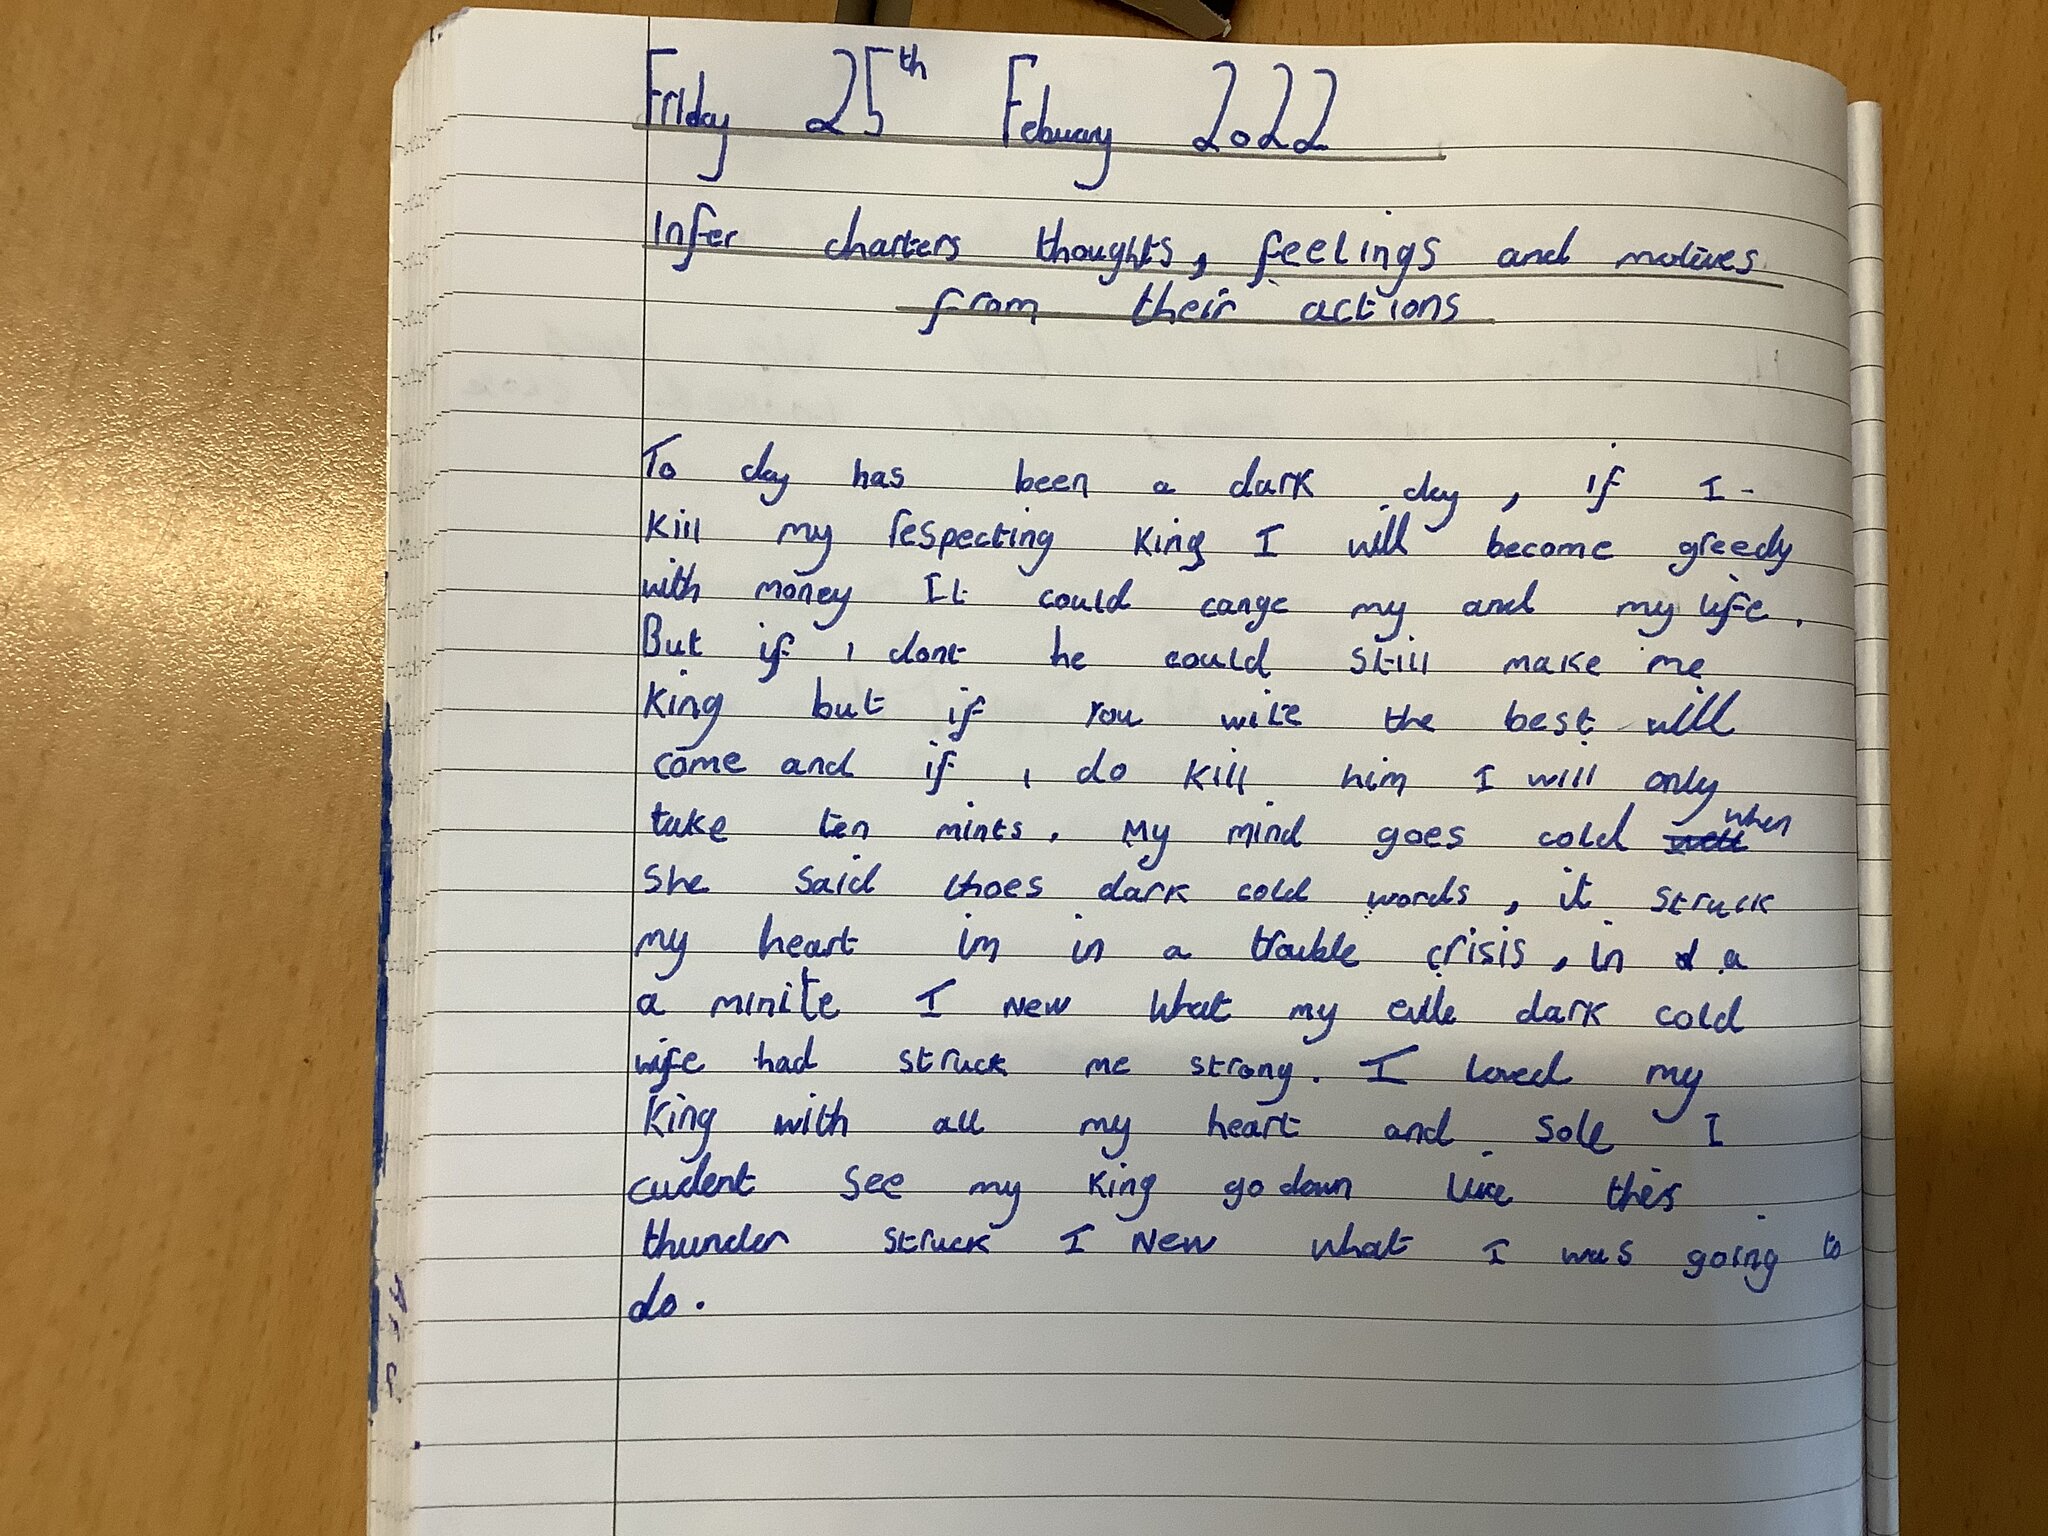 Friday 25th Febuary 2022
Infer charters thoughts, feelings and motives
from their actions
To day has been a dark day, if I-
Kill my respecting King I will become greedy
with money It could cange my and my life.
But if I dont he could still make me
King but if you wite the best will
come and if I do kill him I will only
take ten mints. My mind goes cold when
She said thoes dark cold words, it struck
my heart im in a trouble crisis, in a
a minite I New what my eville dark cold
wife had struck me strong. I loved my
King with all my heart and sole I
cudent see my King go down like this
thunder struck I New what I was going to
do.